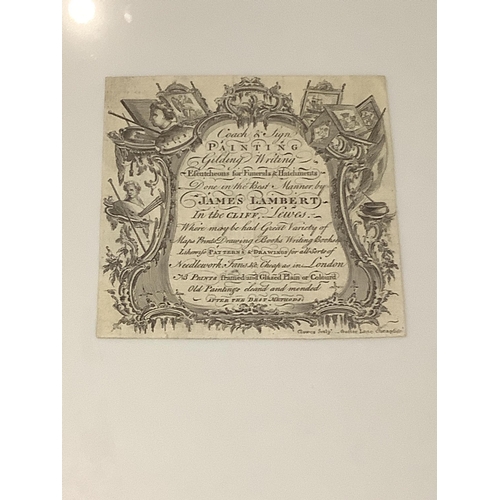 Coach & Sign
PAINTING
Gilding Writing
Escutcheons for Funerals & Hatchments
Done in the Best Manner by
JAMES LAMBERT
In the CLIFF, Lewes.
Where may be had Great Variety of
Maps Prints Drawing Books Writing Books
Likewise PATTERNS & DRAWINGS for all Sorts of
Needlework, Fans &c Cheap as in London
PRINTS Framed and Glazed Plain or Colour'd
Old Paintings clean'd and mended
AFTER THE BEST METHODS